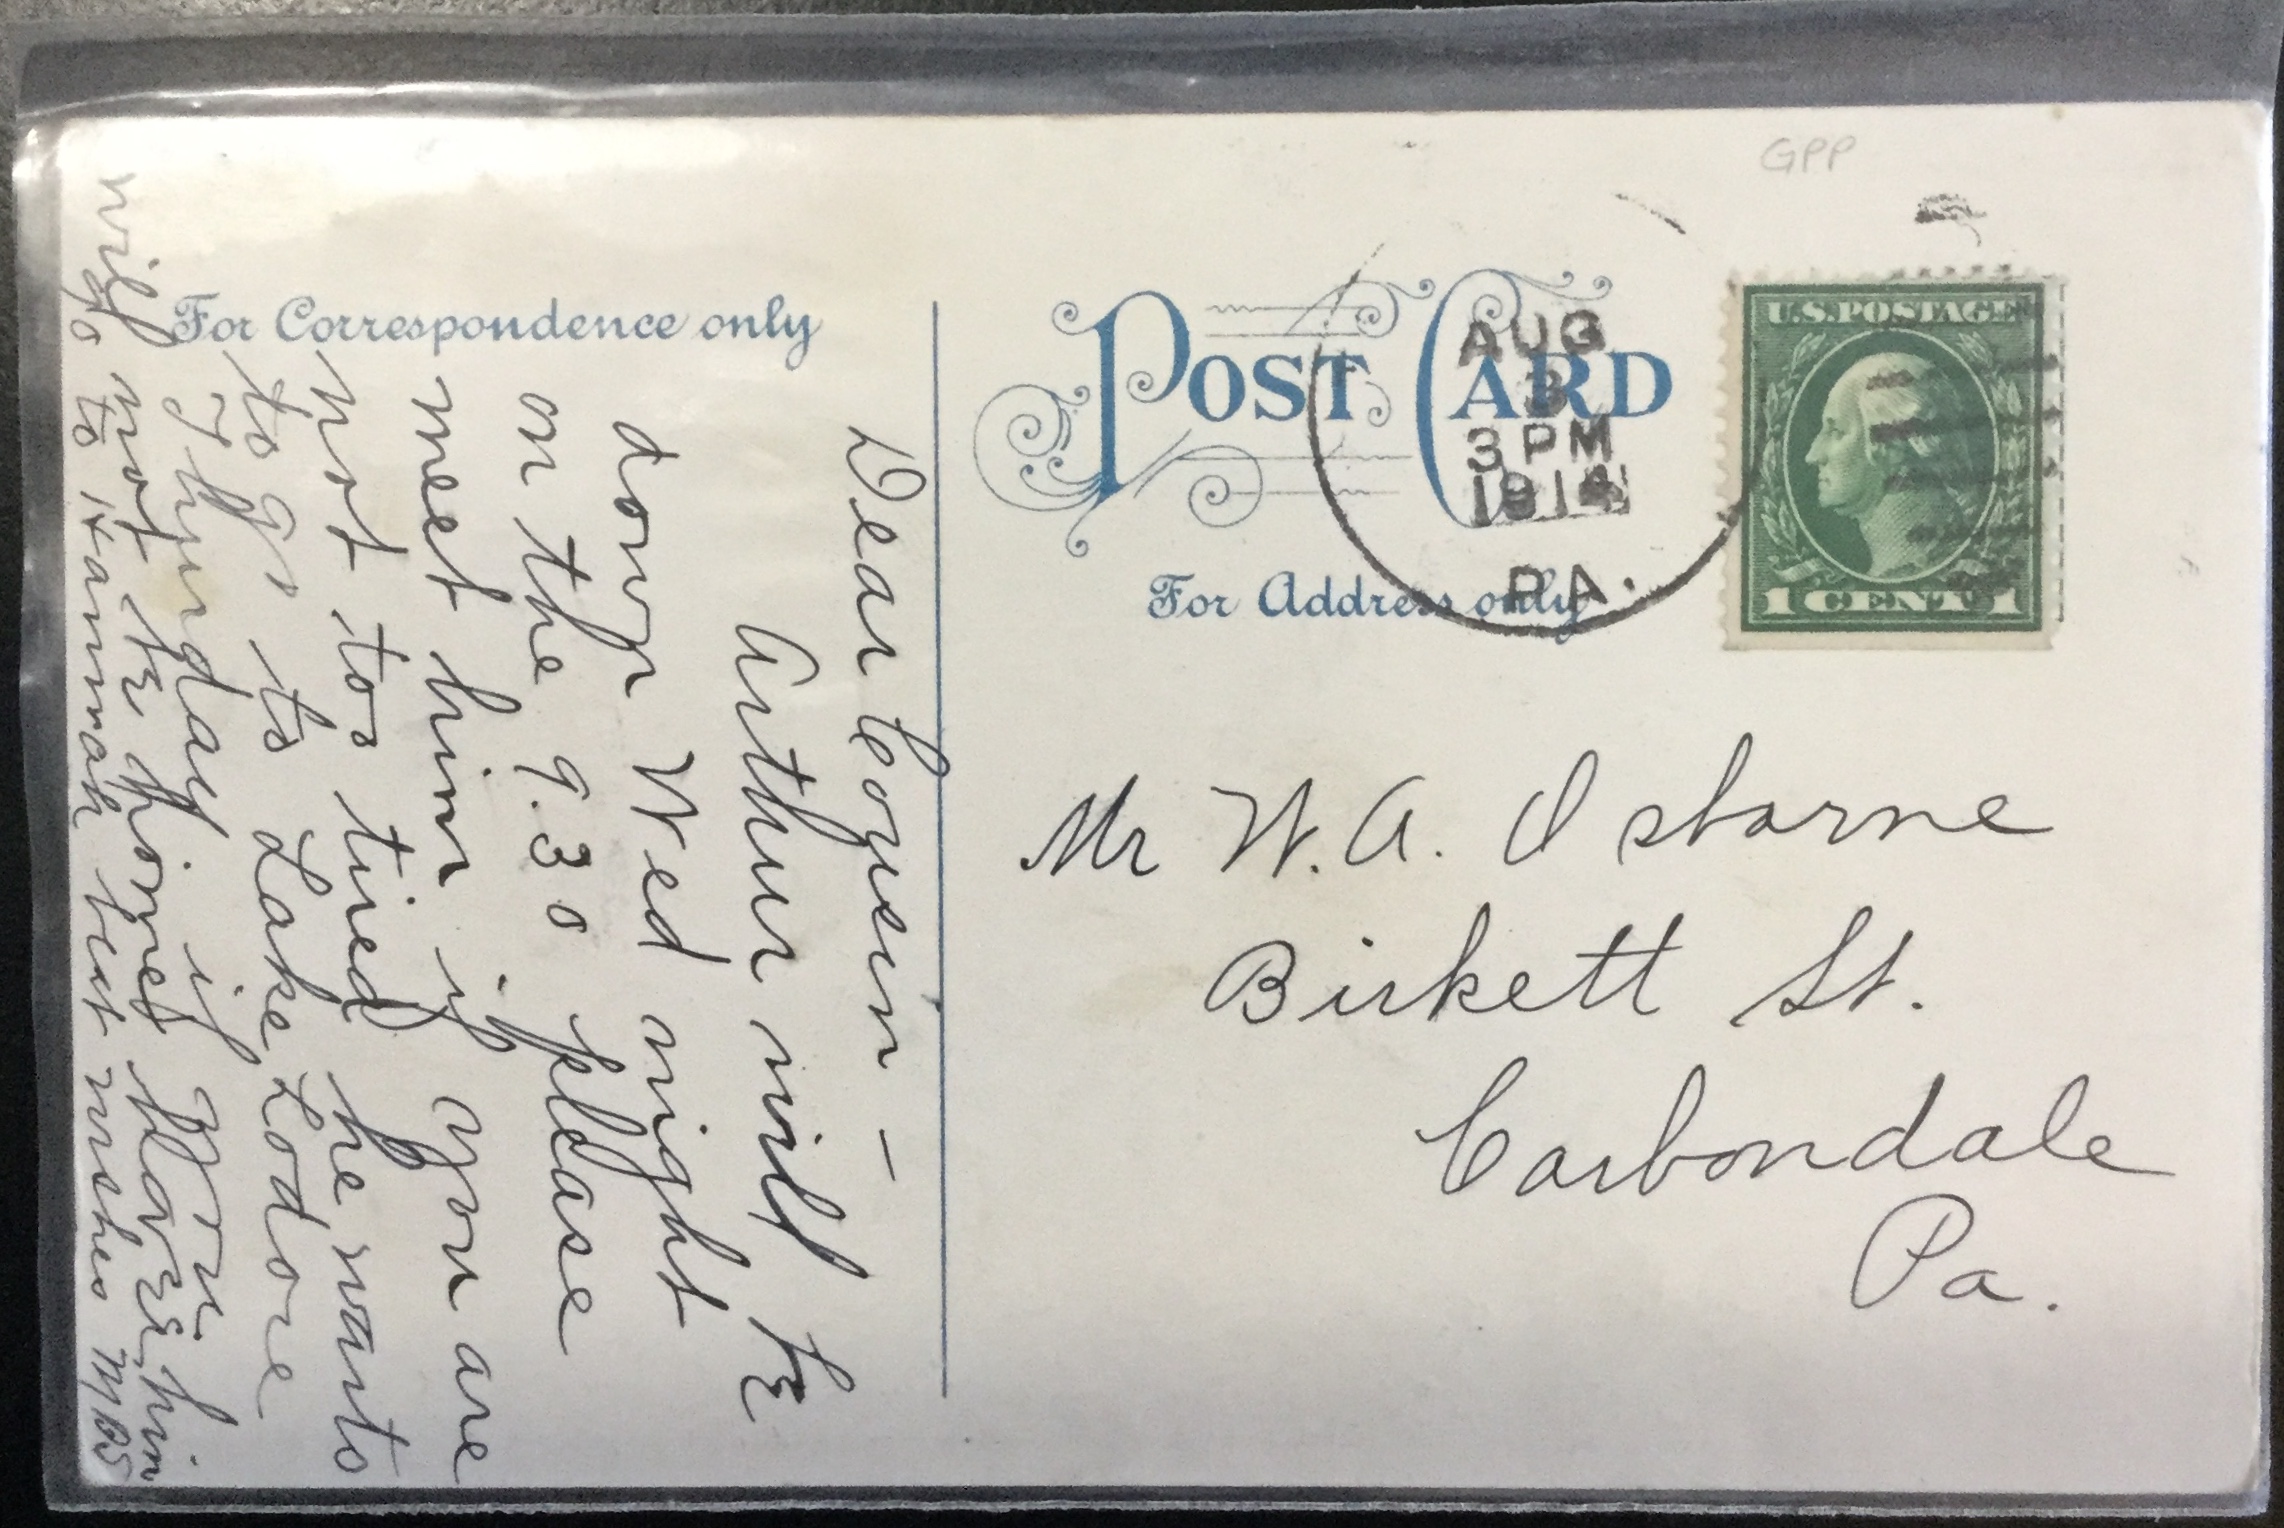 GPP
For Correspondence only
POST CARD
For Address only
AUG
3
3 PM
1914
PA.
U.S. POSTAGE
1 CENT 1
Mr W. A. Osborne
Birkett St.
Carbondale
Pa.
Dear Cousin –
Arthur will be
down Wed night
on the 9.30 please
meet him if you are
not too tired he wants
to go to Lake Lodore
Thursday if you
will not be home have him
go to Hannah best wishes MBS